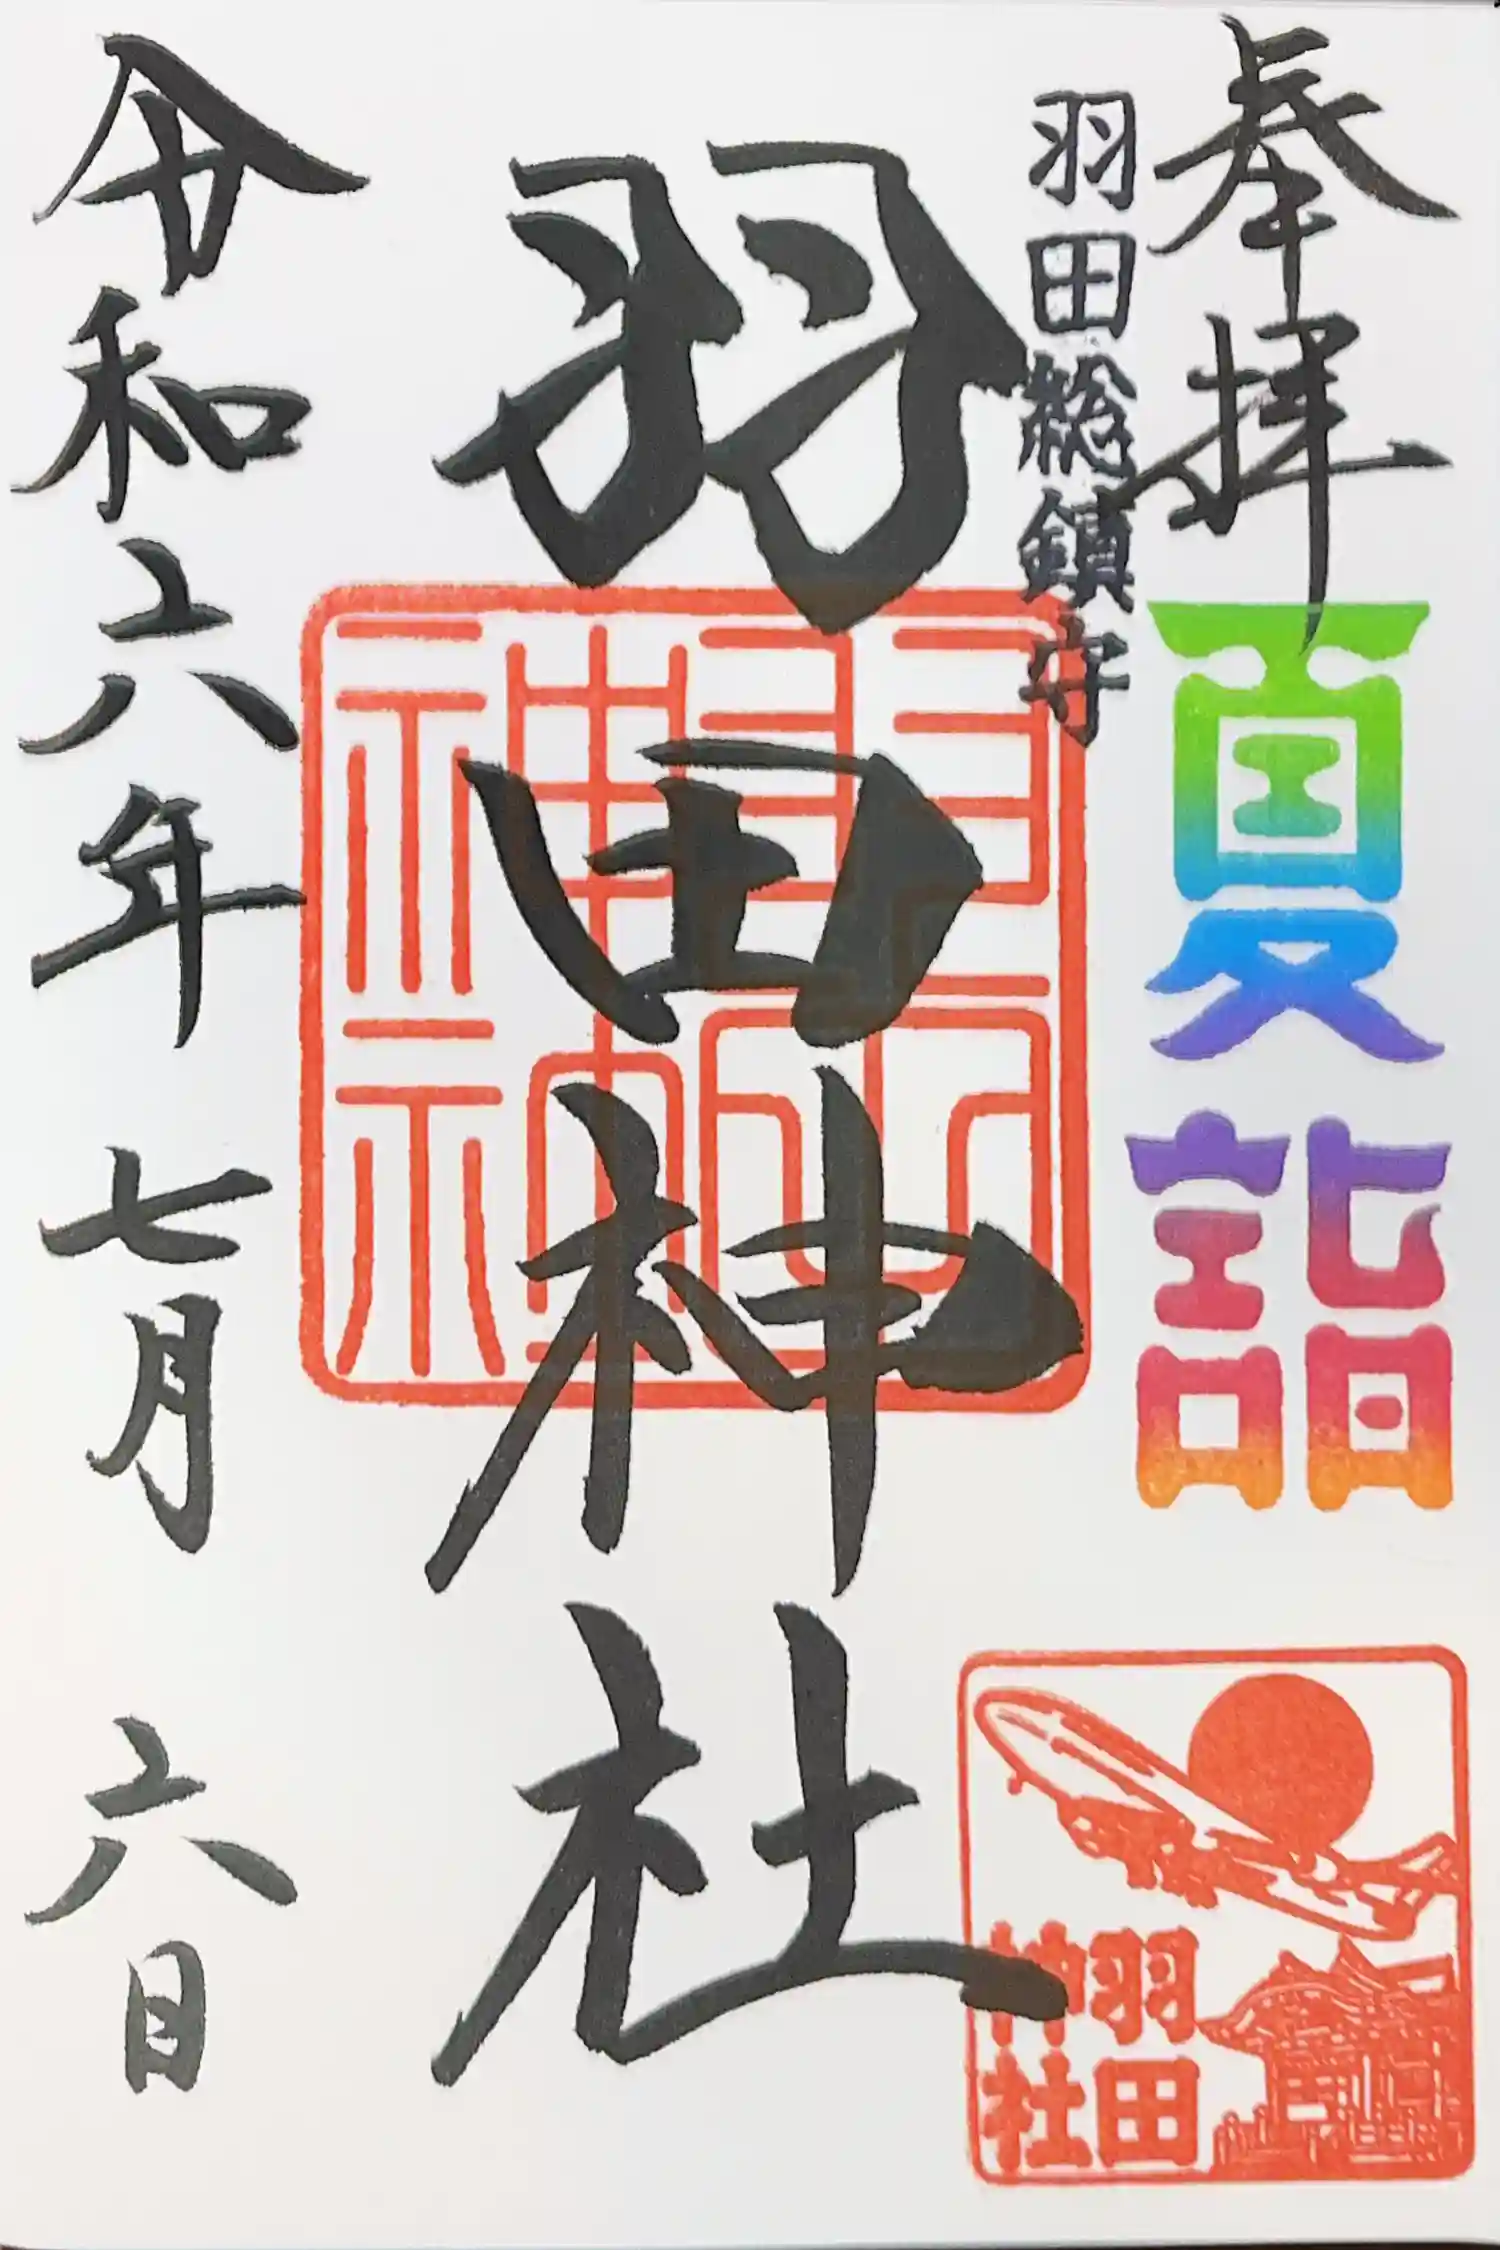 奉拝
夏詣
羽田総鎮守
羽田神社
羽田
神社
令和六年七月六日